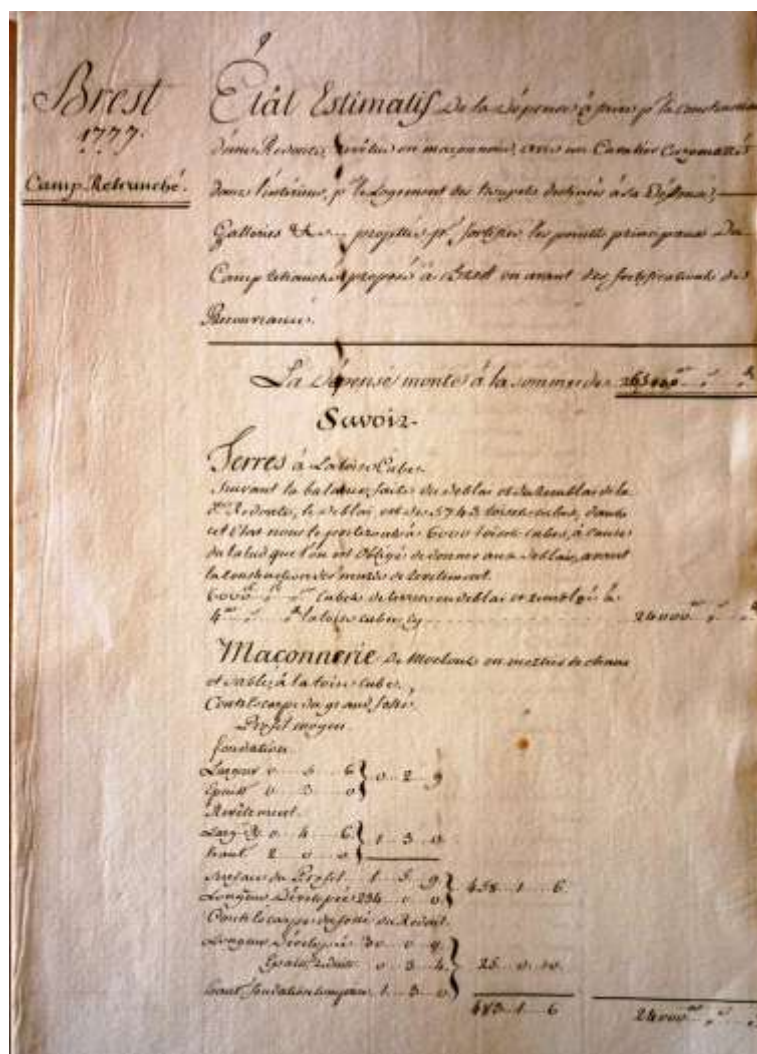 9
Brest
1777.
Camp Retranché.
Etât Estimatif De la dépense à faire pr. la construction
d'une Redoute, revêtue en maçonnerie, avec un Cavalier Cazematté
dans l'intérieur, pr. le Logement des troupes destinées à sa Défense,
Galleries &c... projettés pr. fortifier les points principaux Du
Camp retranché proposé à Brest en avant des fortifications de
Recouvrance.
La Dépense monte à la somme de 263000
Savoir
Terres à la toise Cube.
Suivant la balance faite du deblai et du Remblai de la
de. Redoute, le deblai est de 5743 toises cubes, dans
cet Etat nous le porterons à 6000 toises cubes, à cause
du talud que l'on est obligé de donner aux deblais, avant
la construction des murs de revetement.
6000 cubes de terres en deblai et remblai à
4 la toise cube, cy 24000
Maçonnerie De Moelons en mortier de chaux
et sable, à la toise cube.
Contrescarpe du grand fossé.
Profil moyen
fondation.
Largeur 0 5 6 } 0 2 9
Epaissr 0 3 0
Revêtement.
Larg. R. 0 4 6 } 1 3 0
haut 2 0 0
Surface du Profil 1 5 9 } 458 1 6
Longueur Dévelopée 234 0 0
Contrescarpe du fossé du Réduit.
Longueur Dévelopée 30 0 9
Epaissr. réduite 0 3 4 } 25 0 10
haut. fondation comprise 1 3 0
483 1 6 24000